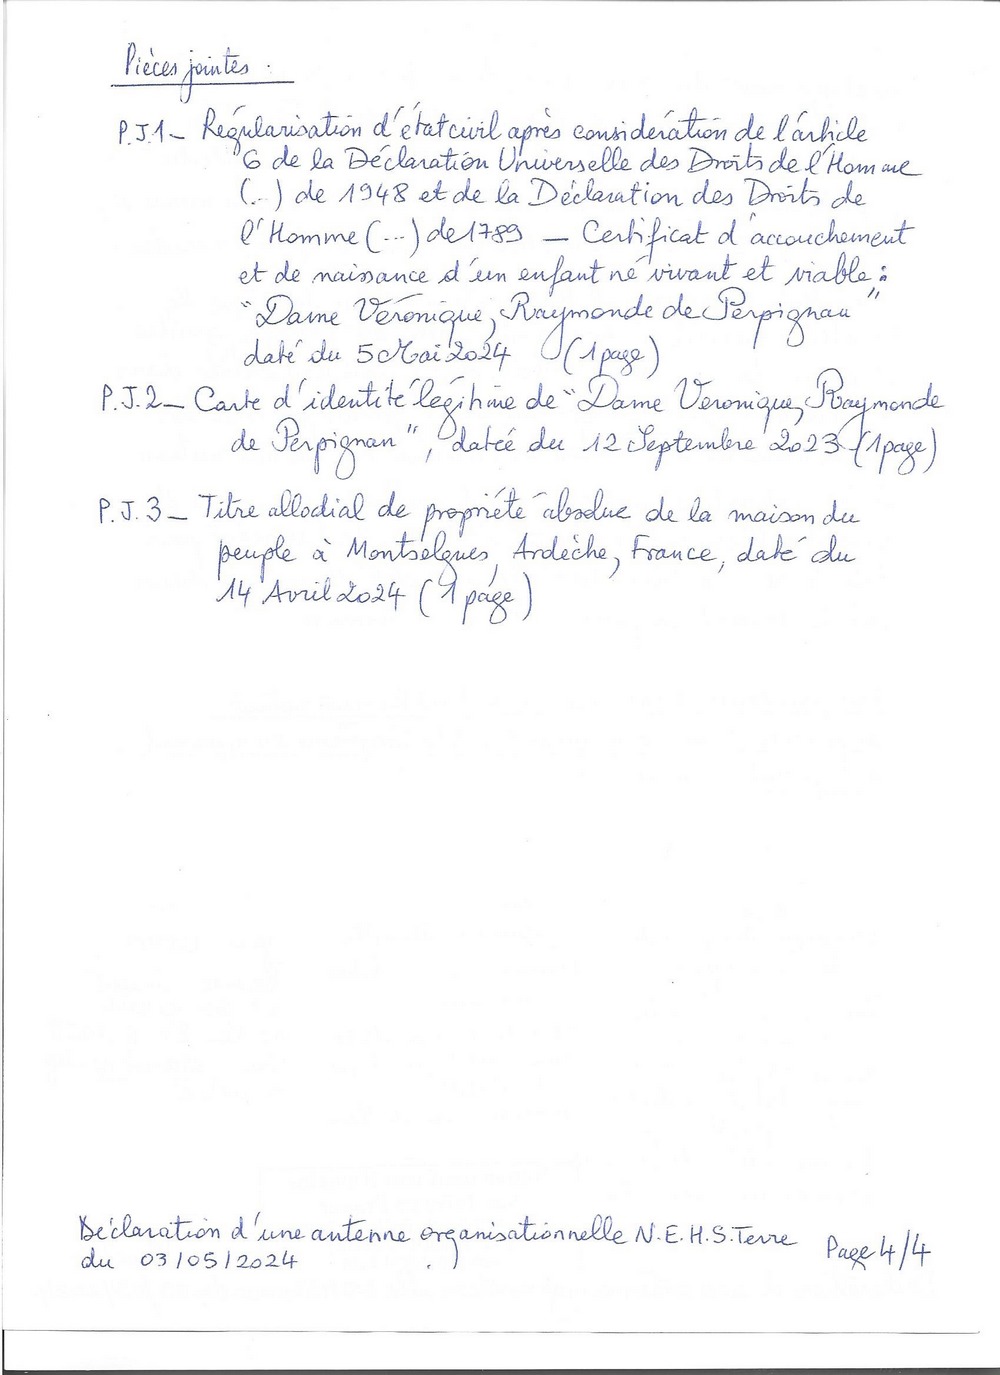 Pièces jointes :
P.J.1_ Régularisation d'état civil après considération de l'article
6 de la Déclaration Universelle des Droits de l'Homme
(...) de 1948 et de la Déclaration des Droits de
l'Homme (...) de 1789 _ Certificat d'accouchement
et de naissance d'un enfant né vivant et viable :
"Dame Véronique, Raymonde de Perpignan"
daté du 5 Mai 2024 (1 page)
P.J.2_ Carte d'identité légitime de "Dame Véronique, Raymonde
de Perpignan", datée du 12 Septembre 2023 (1 page)
P.J.3_ Titre allodial de propriété absolue de la maison du
peuple à Montselgues, Ardèche, France, daté du
14 Avril 2024 (1 page)
Déclaration d'une antenne organisationnelle N.E.H.S.Terre
du 03/05/2024
Page 4/4